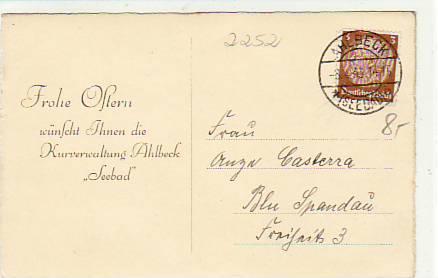 2252
AHLBECK
(SEEBAD)
Deutsches Reich
Frohe Ostern
wünscht Ihnen die
Kurverwaltung Ahlbeck
„Seebad"
8-
Frau
Casterra
Bln Spandau
Freiheit 3